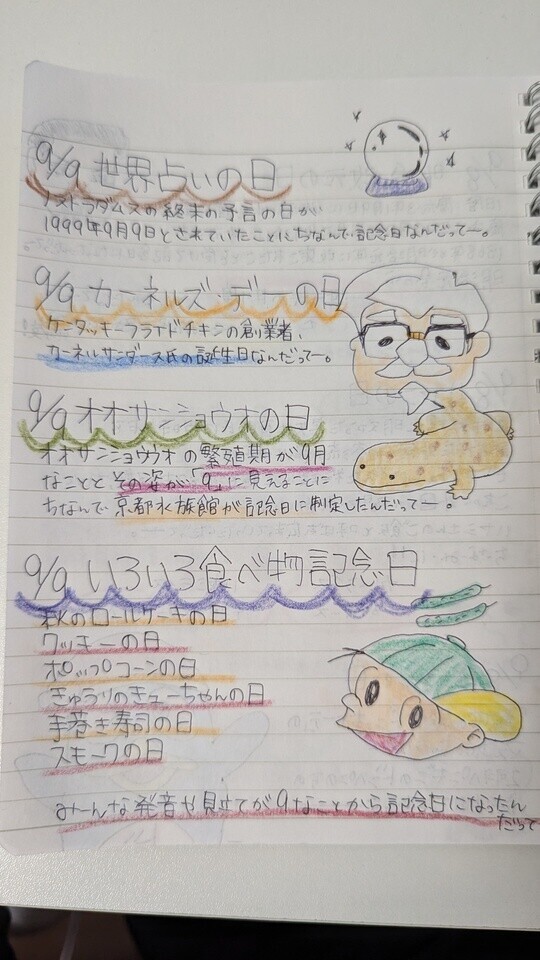 9/9 世界占いの日
ノストラダムスの終末の予言の日が
1999年9月9日とされていたことにちなんで記念日なんだってー。
9/9 カーネルズ・デーの日
ケンタッキーフライドチキンの創業者、
カーネルサンダース氏の誕生日なんだってー。
9/9 オオサンショウウオの日
オオサンショウウオの繁殖期が9月
なことと その姿が「9」に見えることに
ちなんで京都水族館が記念日に制定したんだってー。
9/9 いろいろ食べ物記念日
秋のロールケーキの日
クッキーの日
ポップコーンの日
きゅうりのキューちゃんの日
手巻き寿司の日
スモークの日
みーんな発音や見立てが9なことから記念日になったん
だって